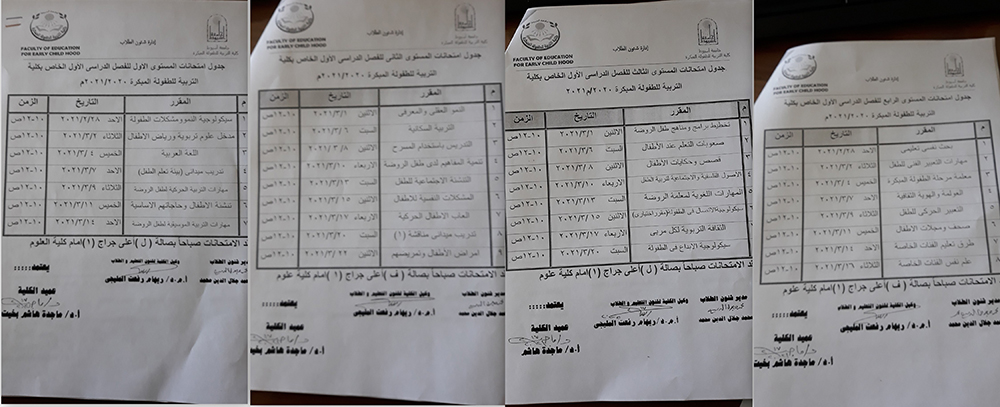 إدارة شئون الطلاب
FACULTY OF EDUCATION
FOR EARLY CHILD HOOD
جامعة أسيوط
جدول امتحانات المستوى الاول للفصل الدراسي الأول الخاص بكلية
التربية للطفولة المبكرة ٢٠٢١/٢٠٢٠م
م المقرر التاريخ الزمن
١ سيكولوجية النمو ومشكلات الطفولة الاحد ٢٠٢١/٢/٢٨ ١٠-١٢ص
٢ مدخل علوم تربوية ورياض الاطفال الثلاثاء ١٠-١٢ص
٣ اللغة العربية الخميس ٢٠٢١/٣/٤ ١٠-١٢ص
٤ تدريب ميداني (بيئة تعلم الطفل) الاحد ٢٠٢١/٣/٧ ١٠-١٢ص
٥ مهارات التربية الحركية لطفل الروضة الثلاثاء ٢٠٢١/٣/٩ ١٠-١٢ص
٦ تنشئة الاطفال وحاجاتهم الاساسية الخميس ٢٠٢١/٣/١١ ١٠-١٢ص
٧ مهارات التربية الموسيقية لطفل الروضة الاحد ٢٠٢١/٣/١٤ ١٠-١٢ص
الامتحانات صباحا بصالة (ل) أعلى جراج (١) امام كلية العلوم
يعتمد
وكيل الكلية لشئون التعليم و الطلاب
أ.م.د/ ريهام رفعت المليجى
عميد الكلية
أ.د/ ماجدة هاشم بخيت
FACULTY OF EDUCATION
FOR EARLY CHILD HOOD
إدارة شئون الطلاب
جدول امتحانات المستوى الثانى للفصل الدراسي الأول الخاص بكلية
التربية للطفولة المبكرة ٢٠٢١/٢٠٢٠م
م المقرر التاريخ الزمن
النمو العقلى والمعرفى الاثنين ٢٠٢١/٣/١ ١٠-١٢ص
التربية السكانية السبت ٢٠٢١/٣/٦ ١٠-١٢ص
التدريس باستخدام المسرح الاثنين ٢٠٢١/٣/٨ ١٠-١٢ص
تنمية المفاهيم لدى طفل الروضة الاربعاء ٢٠٢١/٣/١٠ ١٠-١٢ص
التنشئة الاجتماعية للطفل السبت ٢٠٢١/٣/١٣ ١٠-١٢ص
المشكلات النفسية للاطفال الاثنين ٢٠٢١/٣/١٥ ١٠-١٢ص
العاب الاطفال الحركية الاربعاء ٢٠٢١/٣/١٧ ١٠-١٢ص
تدريب ميدانى مناقشة (١) السبت ٢٠٢١/٣/٢٠ ١٠-١٢ص
امراض الاطفال وتمريضهم الاثنين ٢٠٢١/٣/٢٢ ١٠-١٢ص
الامتحانات صباحا بصالة (ف) أعلى جراج (١) امام كلية علوم
يعتمد
وكيل الكلية لشئون التعليم و الطلاب
أ.م.د/ ريهام رفعت المليجى
محمد جلال الدين محمد
عميد الكلية
أ.د/ ماجدة هاشم بخيت
FACULTY OF EDUCATION
FOR EARLY CHILD HOOD
إدارة شئون الطلاب
جامعة أسيوط
جدول امتحانات المستوى الثالث للفصل الدراسي الأول الخاص بكلية
التربية للطفولة المبكرة ٢٠٢٠/م٢٠٢١
م المقرر التاريخ الزمن
تخطيط برامج ومناهج طفل الروضة الاثنين ٢٠٢١/٣/١ ١٠-١٢ص
صعوبات التعلم عند الأطفال السبت ٢٠٢١/٣/٦ ١٠-١٢ص
قصص وحكايات الاطفال الاثنين ٢٠٢١/٣/٨ ١٠-١٢ص
الاصول الفلسفية والاجتماعية لتربية الطفل الاربعاء ٢٠٢١/٣/١٠ ١٠-١٢ص
المهارات اللغوية لمعلمة الروضة السبت ٢٠٢١/٣/١٣ ١٠-١٢ص
الاثنين ٢٠٢١/٣/١٥ ١٠-١٢ص
الثقافة التربوية لكل مربى الاربعاء ٢٠٢١/٣/١٧ ١٠-١٢ص
سيكولوجية الابداع فى الطفولة السبت ٢٠٢١/٣/٢٠ ١٠-١٢ص
الامتحانات صباحا بصالة (ل) أعلى جراج (١) امام كلية علوم
مدير شئون الطلاب
وكيل الكلية لشئون التعليم و الطلاب
يعتمد
محمد جلال الدين محمد
أ.م.د/ ريهام رفعت المليجى
عميد الكلية
أ.د/ ماجدة هاشم
FACULTY OF EDUCATION
FOR EARLY CHILD HOOD
إدارة شئون الطلاب
جدول امتحانات المستوى الرابع للفصل الدراسي الأول الخاص بكلية
التربية للطفولة المبكرة ٢٠٢١/٢٠٢٠م
م المقرر التاريخ الزمن
بحث نفسى تعليمى الاحد ٢٠٢١/٢/٢٨ ١٠-١٢ص
مهارات التعبير الفنى للطفل الثلاثاء ١٠-١٢ص
معلمة مرحلة الطفولة المبكرة الخميس ٢٠٢١/٣/٤ ١٠-١٢ص
العولمة والهوية الثقافية الاحد ١٠-١٢ص
التعبير الحركى للطفل الثلاثاء ١٠-١٢ص
صحف ومجلات الاطفال الخميس ٢٠٢١/٣/١١ ١٠-١٢ص
طرق تعليم الفئات الخاصة الاحد ١٠-١٢ص
علم نفس الفئات الخاصة الثلاثاء ٢٠٢١/٣/١٦ ١٠-١٢ص
الامتحانات صباحا بصالة (ف) أعلى جراج (١) امام كلية علوم
مدير شئون الطلاب
وكيل الكلية لشئون التعليم و الطلاب
يعتمد
محمد جلال الدين محمد
أ.م.د/ ريهام رفعت المليجى
عميد الكلية
أ.د/ ماجدة هاشم بخيت